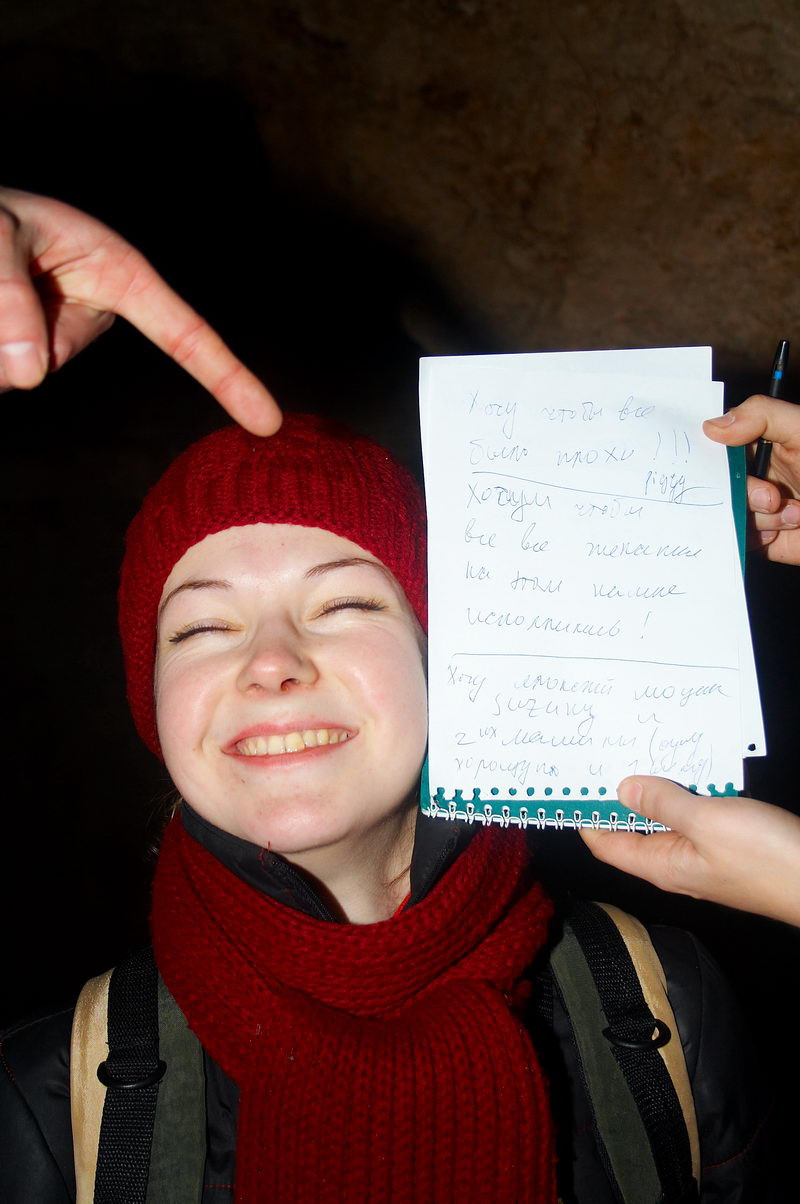 Хочу чтобы все
было прохи !!!
piggy
Хотим чтобы
все все желания
на этом камне
исполнились !
Хочу
suzuky и
2ух машины (одну
хорошую и